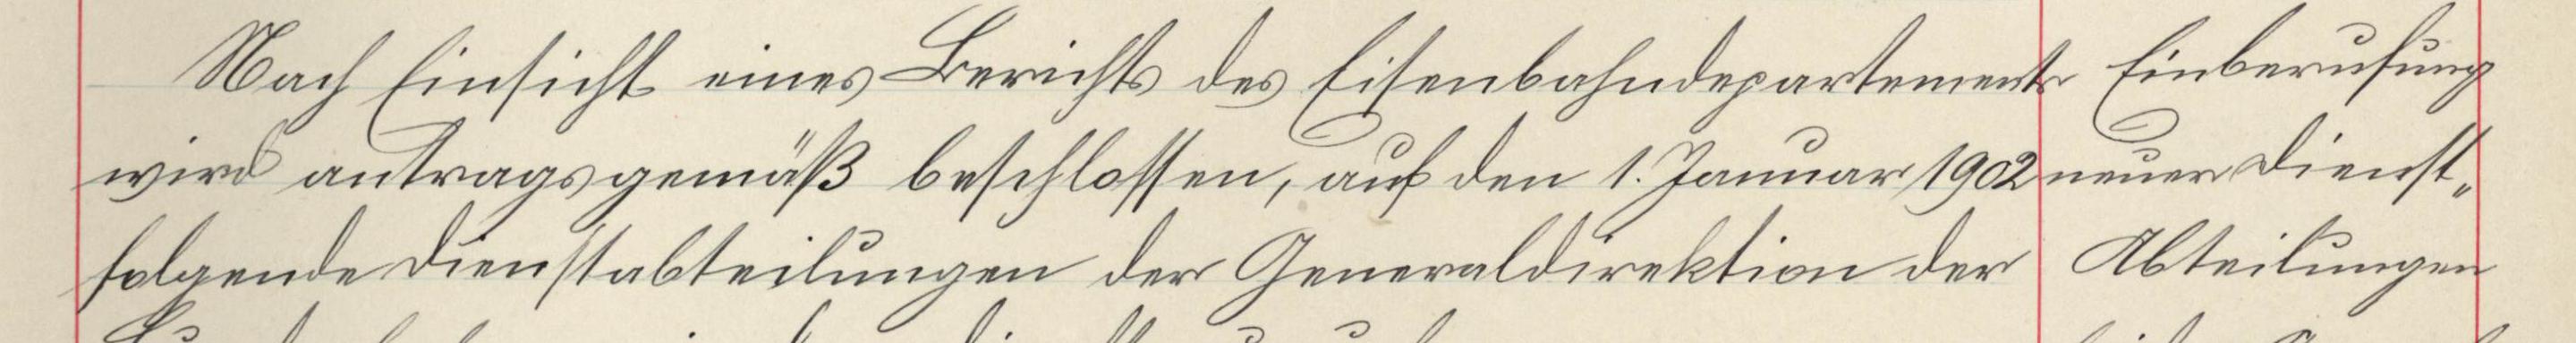 Nach Einsicht eines Berichts des Eisenbahndepartements
wird antragsgemäß beschlossen, auf den 1. Januar 1902
folgende Dienstabteilungen der Generaldirektion der
Einberufung
neuer Dienst-
Abteilungen